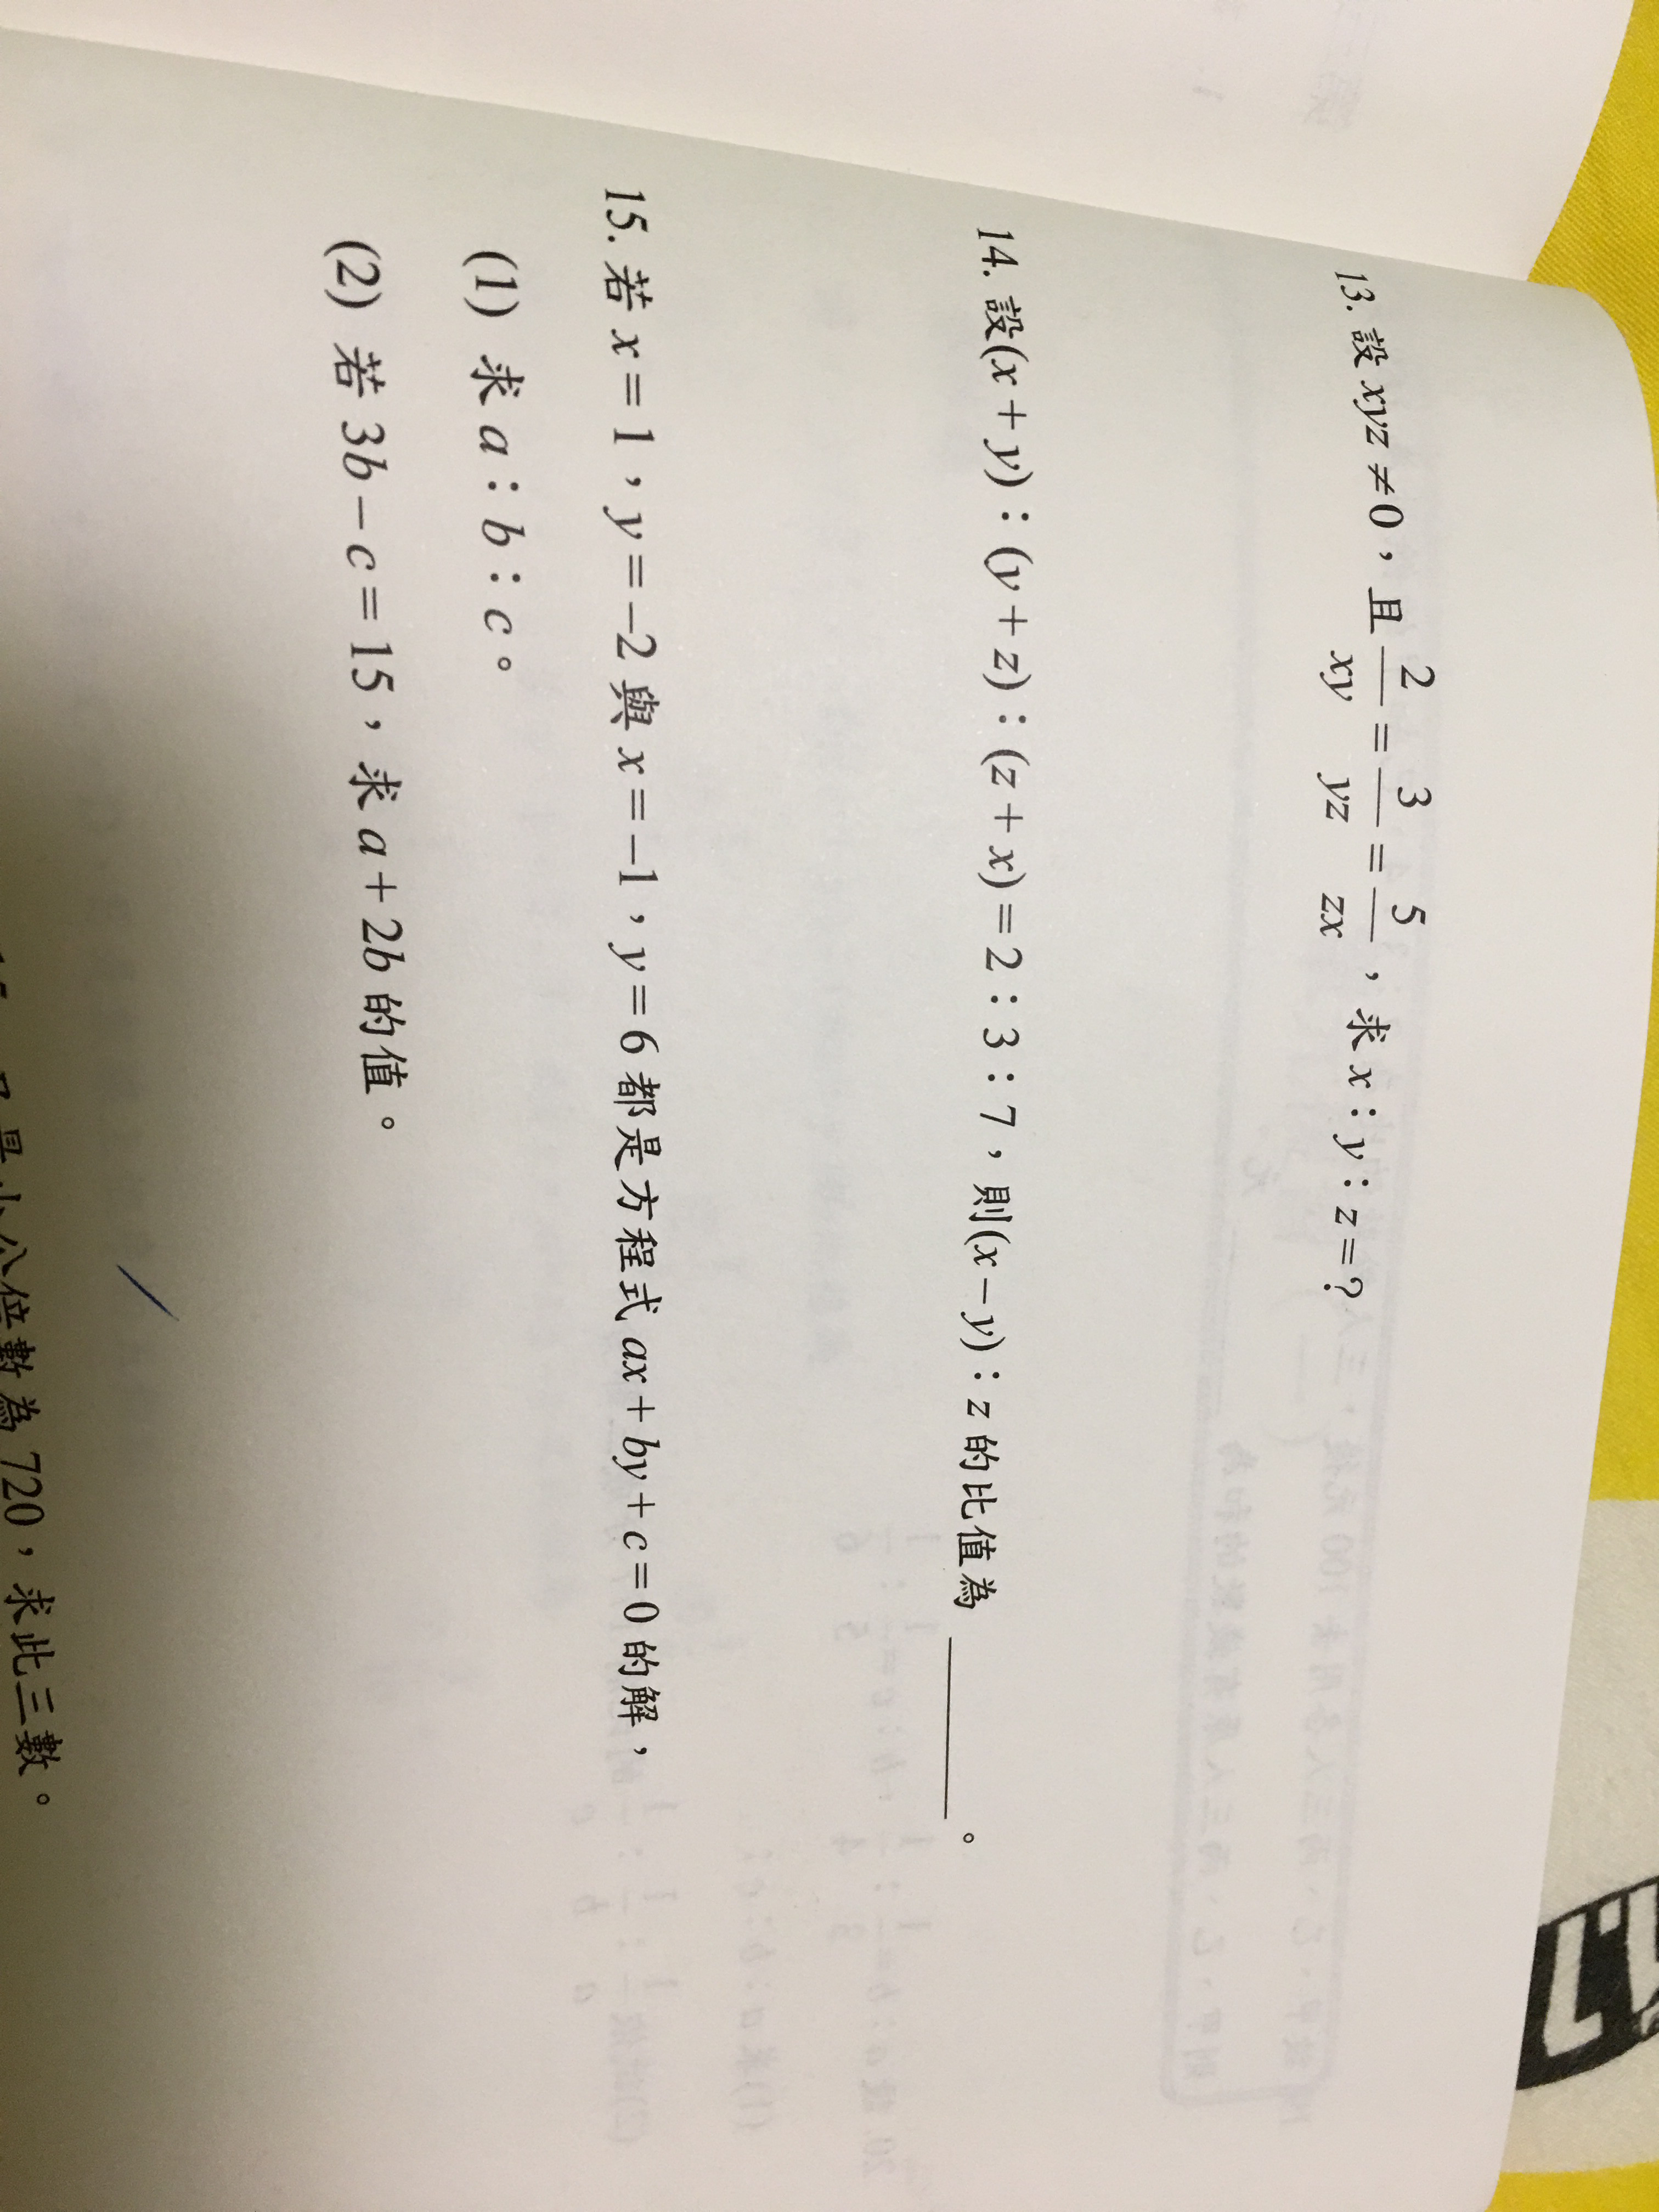 13. 設 xyz≠0，且 2/xy = 3/yz = 5/zx ，求 x：y：z=？
14. 設(x+y)：(y+z)：(z+x)=2：3：7，則(x-y)：z 的比值為 ______ 。
15. 若 x=1，y=-2 與 x=-1，y=6 都是方程式 ax+by+c=0 的解，
(1) 求 a：b：c。
(2) 若 3b-c=15，求 a+2b 的值。
最小公倍數為 720，求此三數。